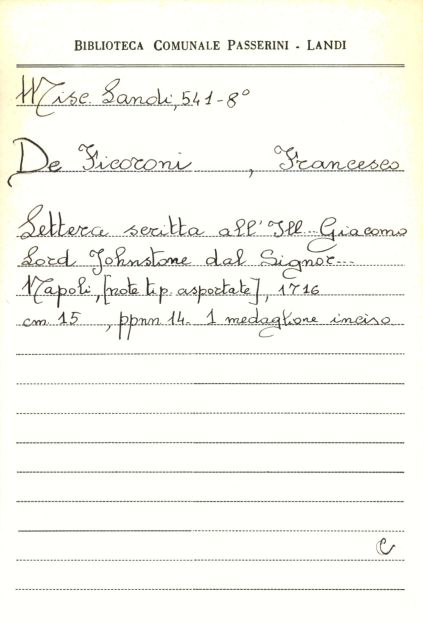 BIBLIOTECA COMUNALE PASSERINI - LANDI
Misc. Landi, 541-8°
De Ficoroni , Francesco
Lettera scritta all'Ill...Giacomo
Lord Johnstone dal Signor...
Napoli, [note tip. asportate], 1716
cm 15 , ppnn 14. 1 medaglione inciso
C